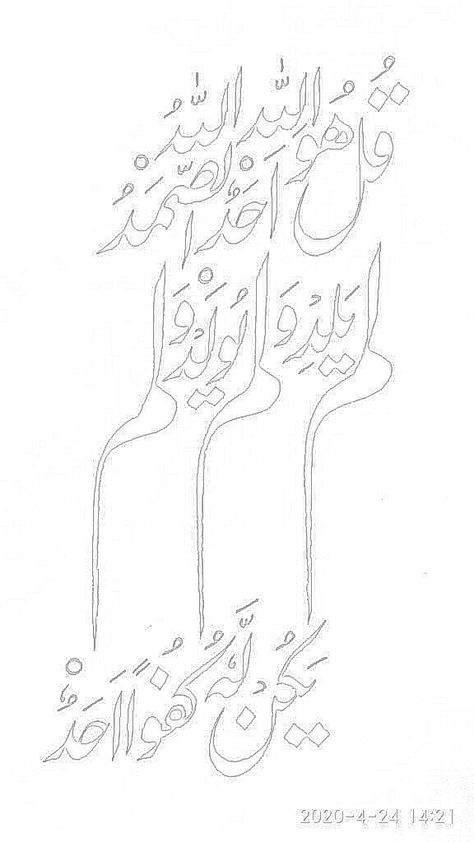 قُلْ هُوَ اللّٰهُ اَحَدٌ اللّٰهُ الصَّمَدُ
لم يَلِدْ وَ لم يُولَدْ وَ لم
يَكُنْ لَّهُ كُفُوًا اَحَدٌ
2020-4-24 14:21